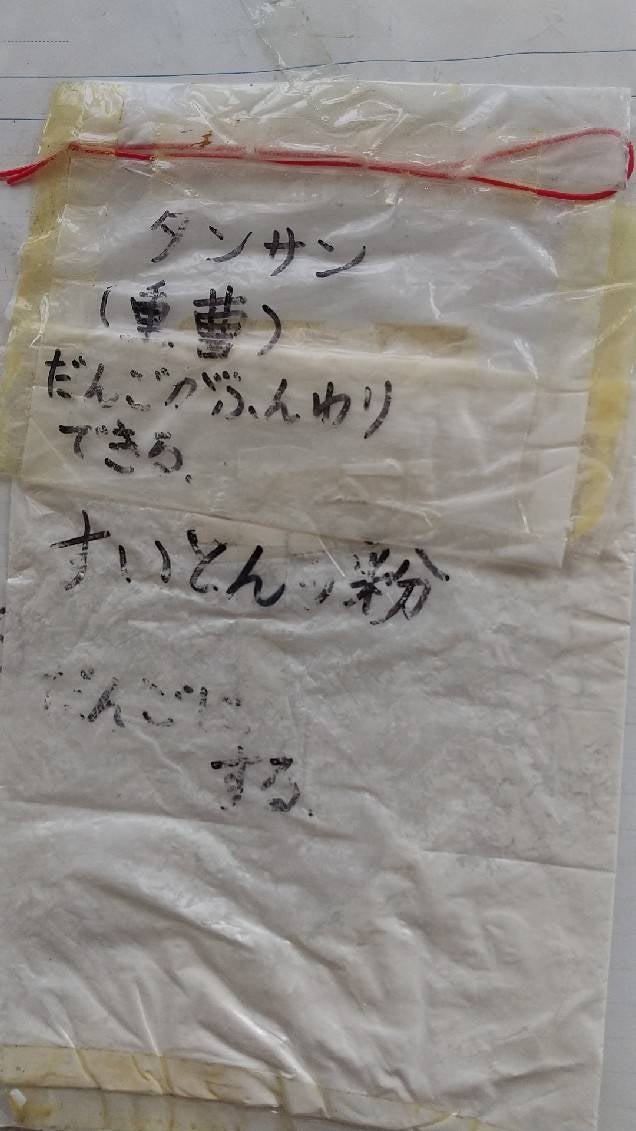 タンサン
(重曹)
だんごがふんわり
できる.
すいとんッ粉
だんごに
する.